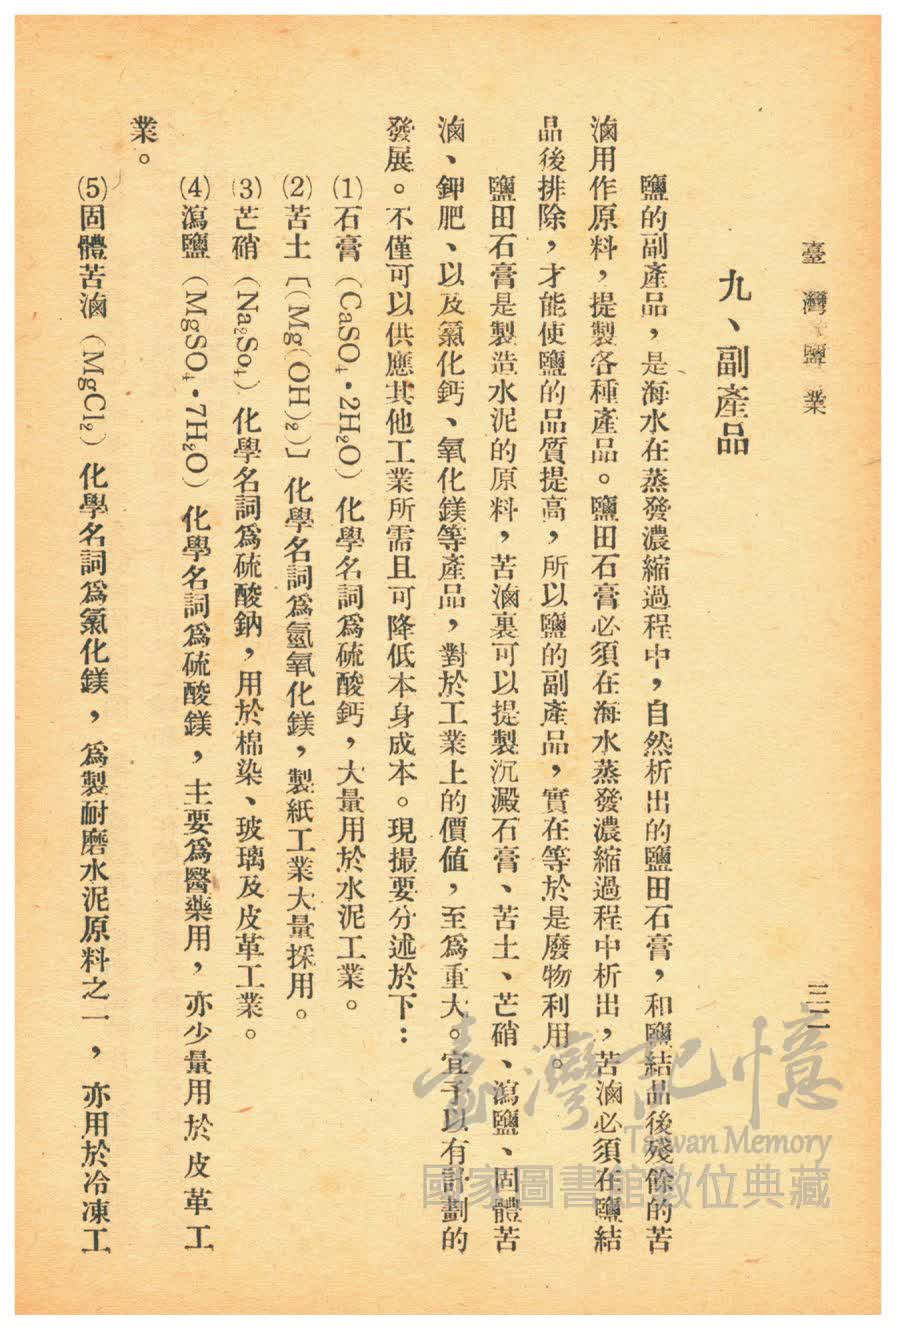 臺灣鹽業
三二
九、副產品
鹽的副產品，是海水在蒸發濃縮過程中，自然析出的鹽田石膏，和鹽結晶後殘餘的苦
滷用作原料，提製各種產品。鹽田石膏必須在海水蒸發濃縮過程中析出，苦滷必須在鹽結
晶後排除，才能使鹽的品質提高，所以鹽的副產品，實在等於是廢物利用。
鹽田石膏是製造水泥的原料，苦滷裏可以提製沉澱石膏、苦土、芒硝、瀉鹽、固體苦
滷、鉀肥、以及氯化鈣、氧化鎂等產品，對於工業上的價值，至為重大。宜予以有計劃的
發展。不僅可以供應其他工業所需且可降低本身成本。現撮要分述於下：
(1)石膏（CaSO₄·2H₂O）化學名詞為硫酸鈣，大量用於水泥工業。
(2)苦土〔（Mg（OH）₂）〕化學名詞為氫氧化鎂，製紙工業大量採用。
(3)芒硝（Na₂So₄）化學名詞為硫酸鈉，用於棉染、玻璃及皮革工業。
(4)瀉鹽（MgSO₄·7H₂O）化學名詞為硫酸鎂，主要為醫藥用，亦少量用於皮革工
業。
(5)固體苦滷（MgCl₂）化學名詞為氯化鎂，為製耐磨水泥原料之一，亦用於冷凍工
臺灣記憶
Taiwan Memory
國家圖書館數位典藏